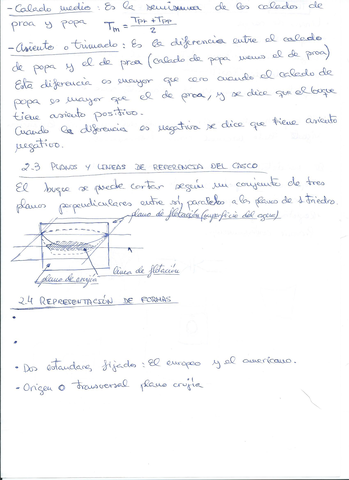 - Calado medio: Es la semisuma de los calados de
proa y popa Tm = Tpr + Tpp / 2
- Asiento o trimado: Es la diferencia entre el calado
de popa y el de proa (calado de popa menos el de proa)
Esta diferencia es mayor que cero cuando el calado de
popa es mayor que el de proa, y se dice que el buque
tiene asiento positivo.
Cuando la diferencia es negativa se dice que tiene asiento
negativo.
2.3 PLANOS Y LINEAS DE REFERENCIA DEL CASCO
El buque se puede cortar según un conjunto de tres
planos perpendiculares entre sí, paralelo a los planos de
plano de flotación (superficie del agua)
línea de flotación
plano de crujía
2.4 REPRESENTACIÓN DE FORMAS
•
•
• Dos estandares fijados: El europeo y el americano.
- Origen O transversal plano crujía